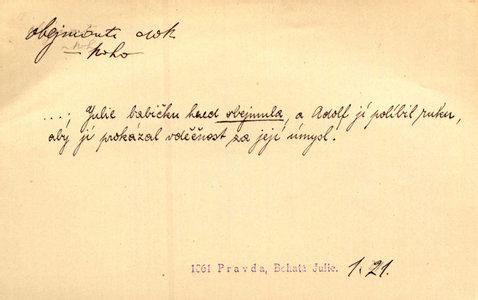 obejmouti dok.
koho
...; Julie babičku hned objemula, a Adolf jí políbil ruku,
aby jí prokázal vděčnost za její úmysl.
1861 Pravda, Bohatá Julie. 1. 21.